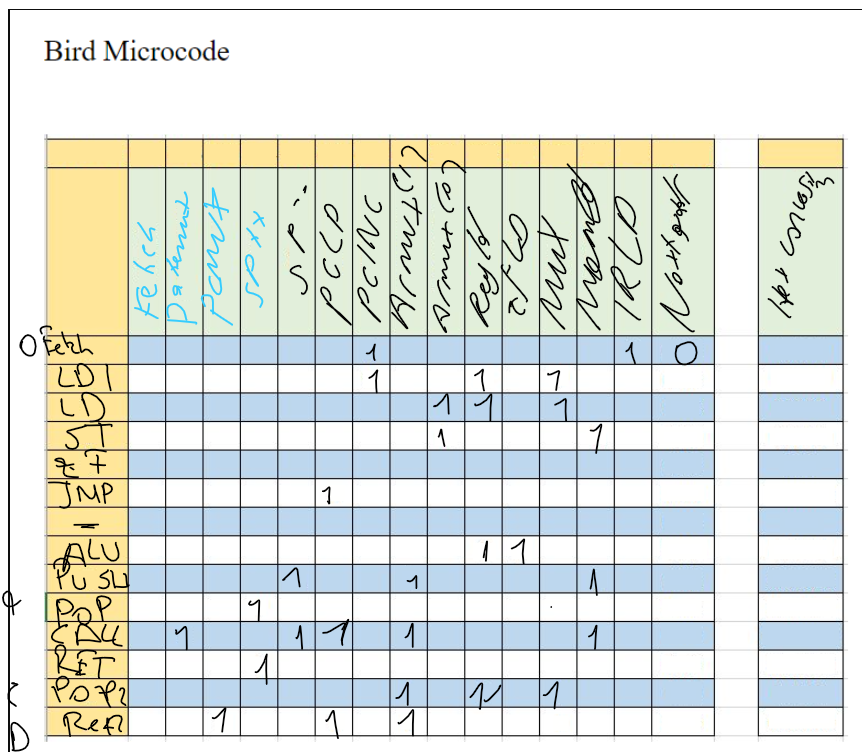 Bird Microcode
Fetch Datamux PCmux SP++ SP-- PCLD PCINC Armux(1) Armux(0) Regld ZFLD MUX IRLD
0 Fetch 1 1 0
LDI 1 1 1
LD 1 1 1
ST 1 1
ZF
JMP 1
-
ALU 1 1
PUSH 1 1 1
POP 1
CALL 1 1 1 1 1
RET 1
POP2 1 1 1
D Ret2 1 1 1